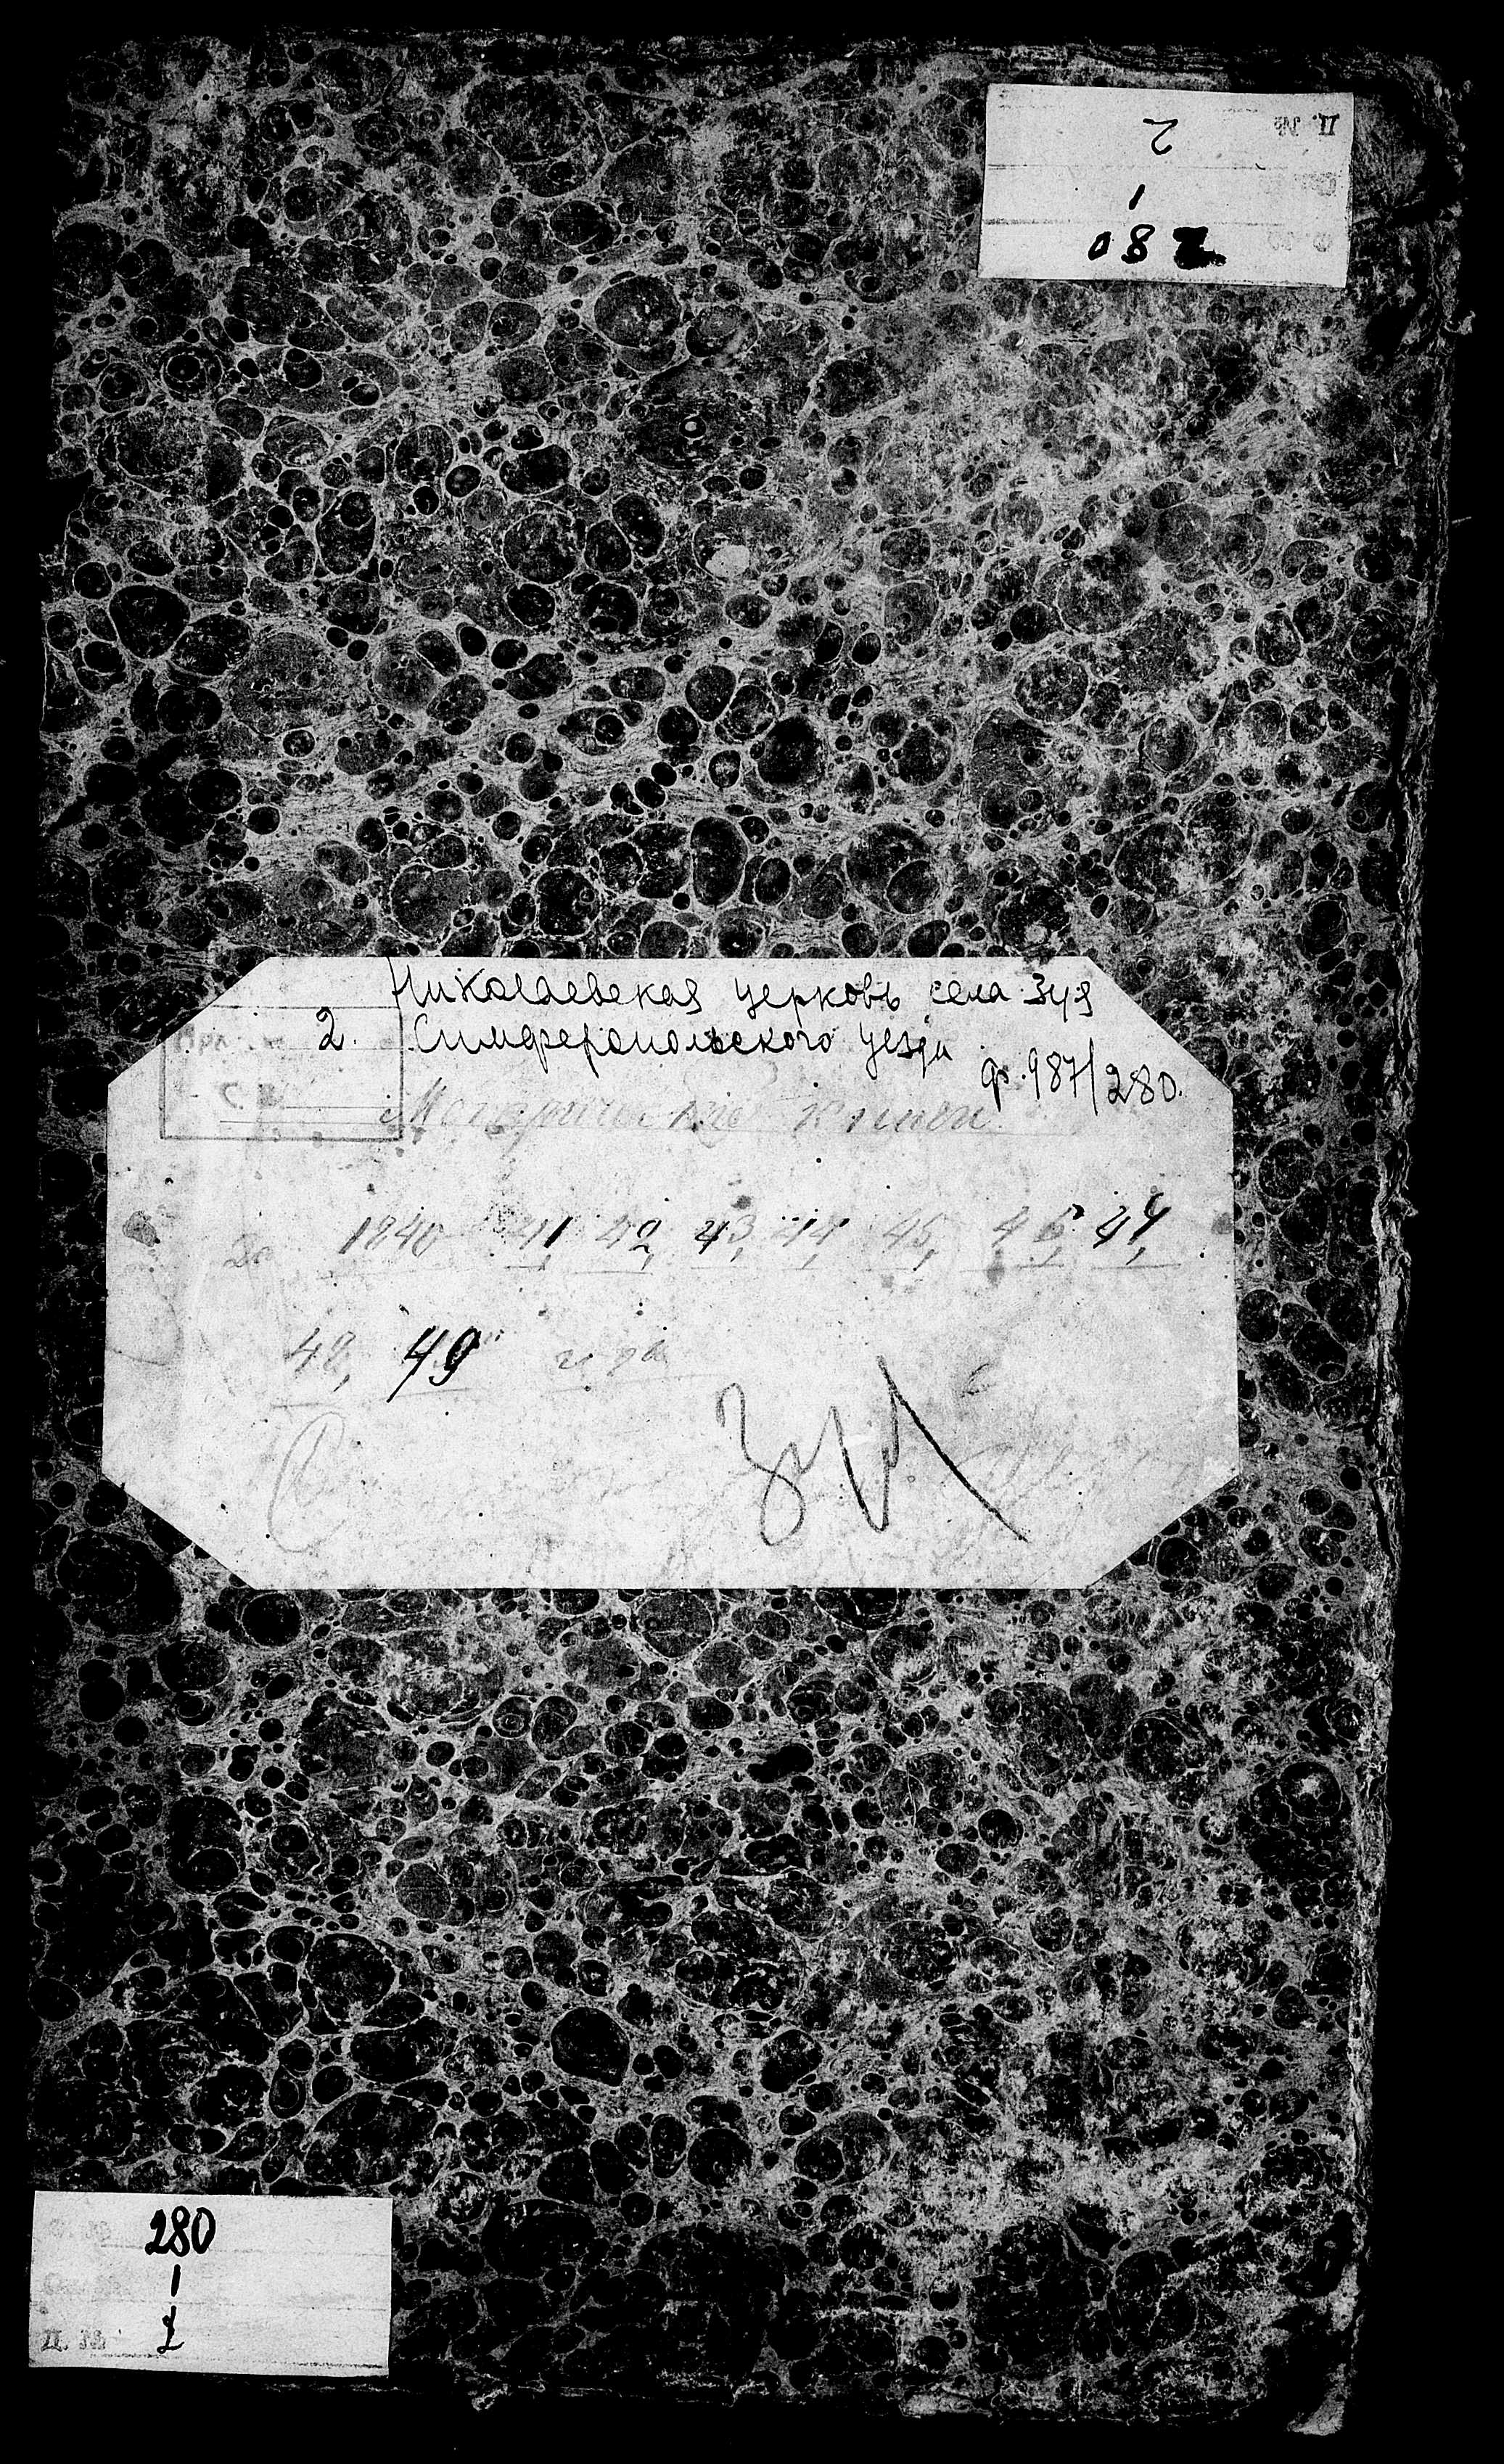 Д. №
2
1
280
Николаевская церковь села Зуя
2. Симферопольского уезда
ф. 987/280.
Метрические книги
За 1840 41, 42, 43, 44, 45, 46, 47,
48, 49 года
Зуя
280
1
Д. № 2